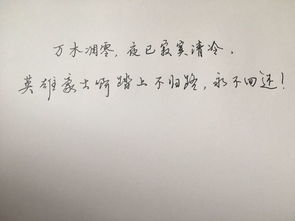 万木凋零，夜已寂寞清冷，
英雄豪大呵踏上不归路，永不回还！